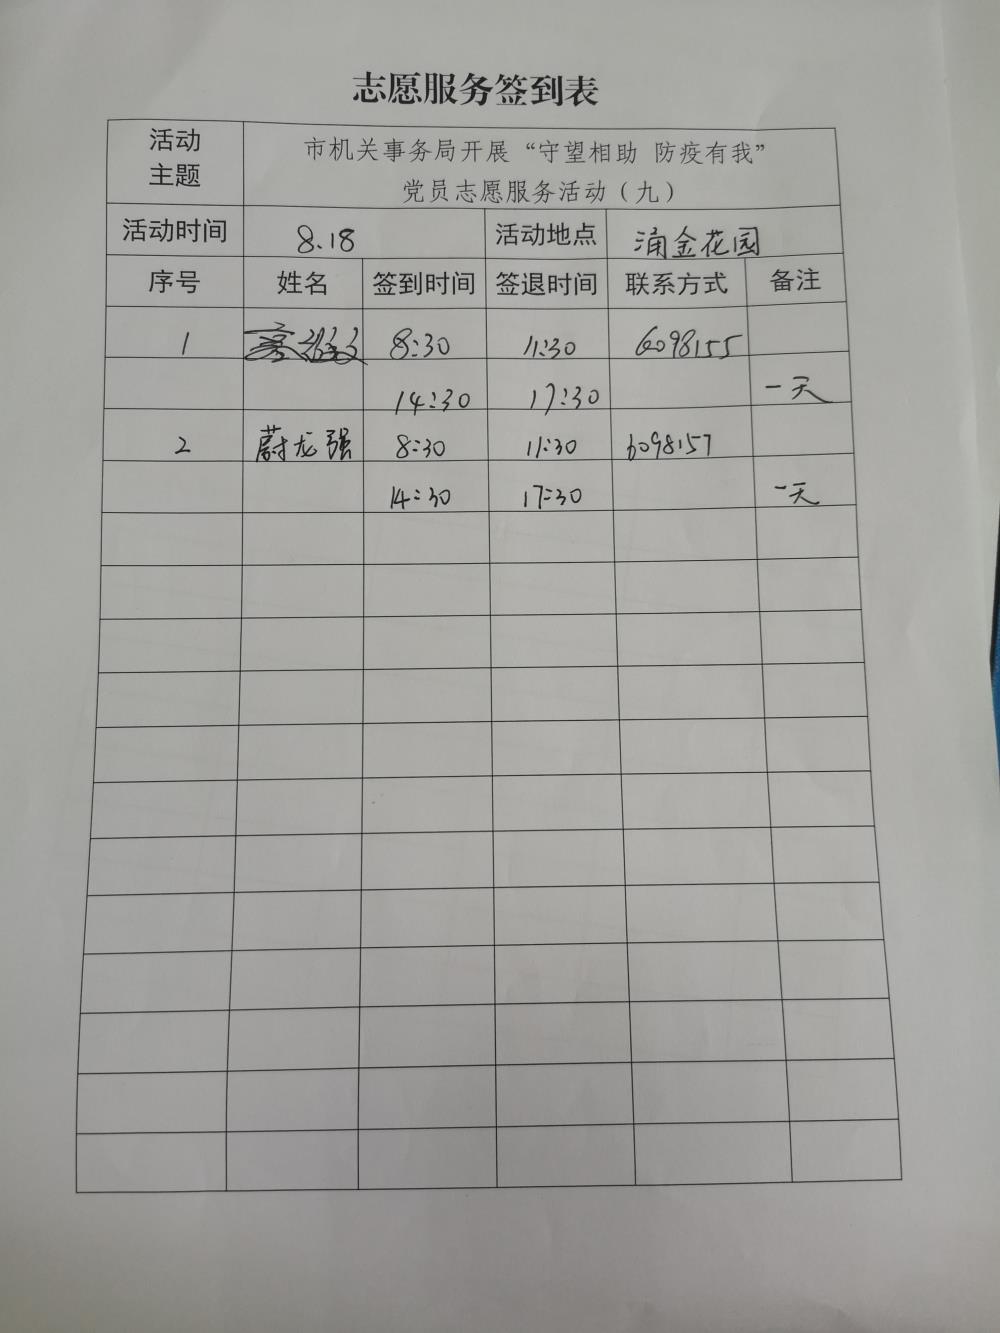 志愿服务签到表
活动主题 市机关事务局开展“守望相助 防疫有我”
党员志愿服务活动（九）
活动时间 8.18 活动地点 涌金花园
序号 姓名 签到时间 签退时间 联系方式 备注
1 8:30 11:30 6098155
14:30 17:30 一天
2 蔚龙强 8:30 11:30 6098157
14:30 17:30 一天